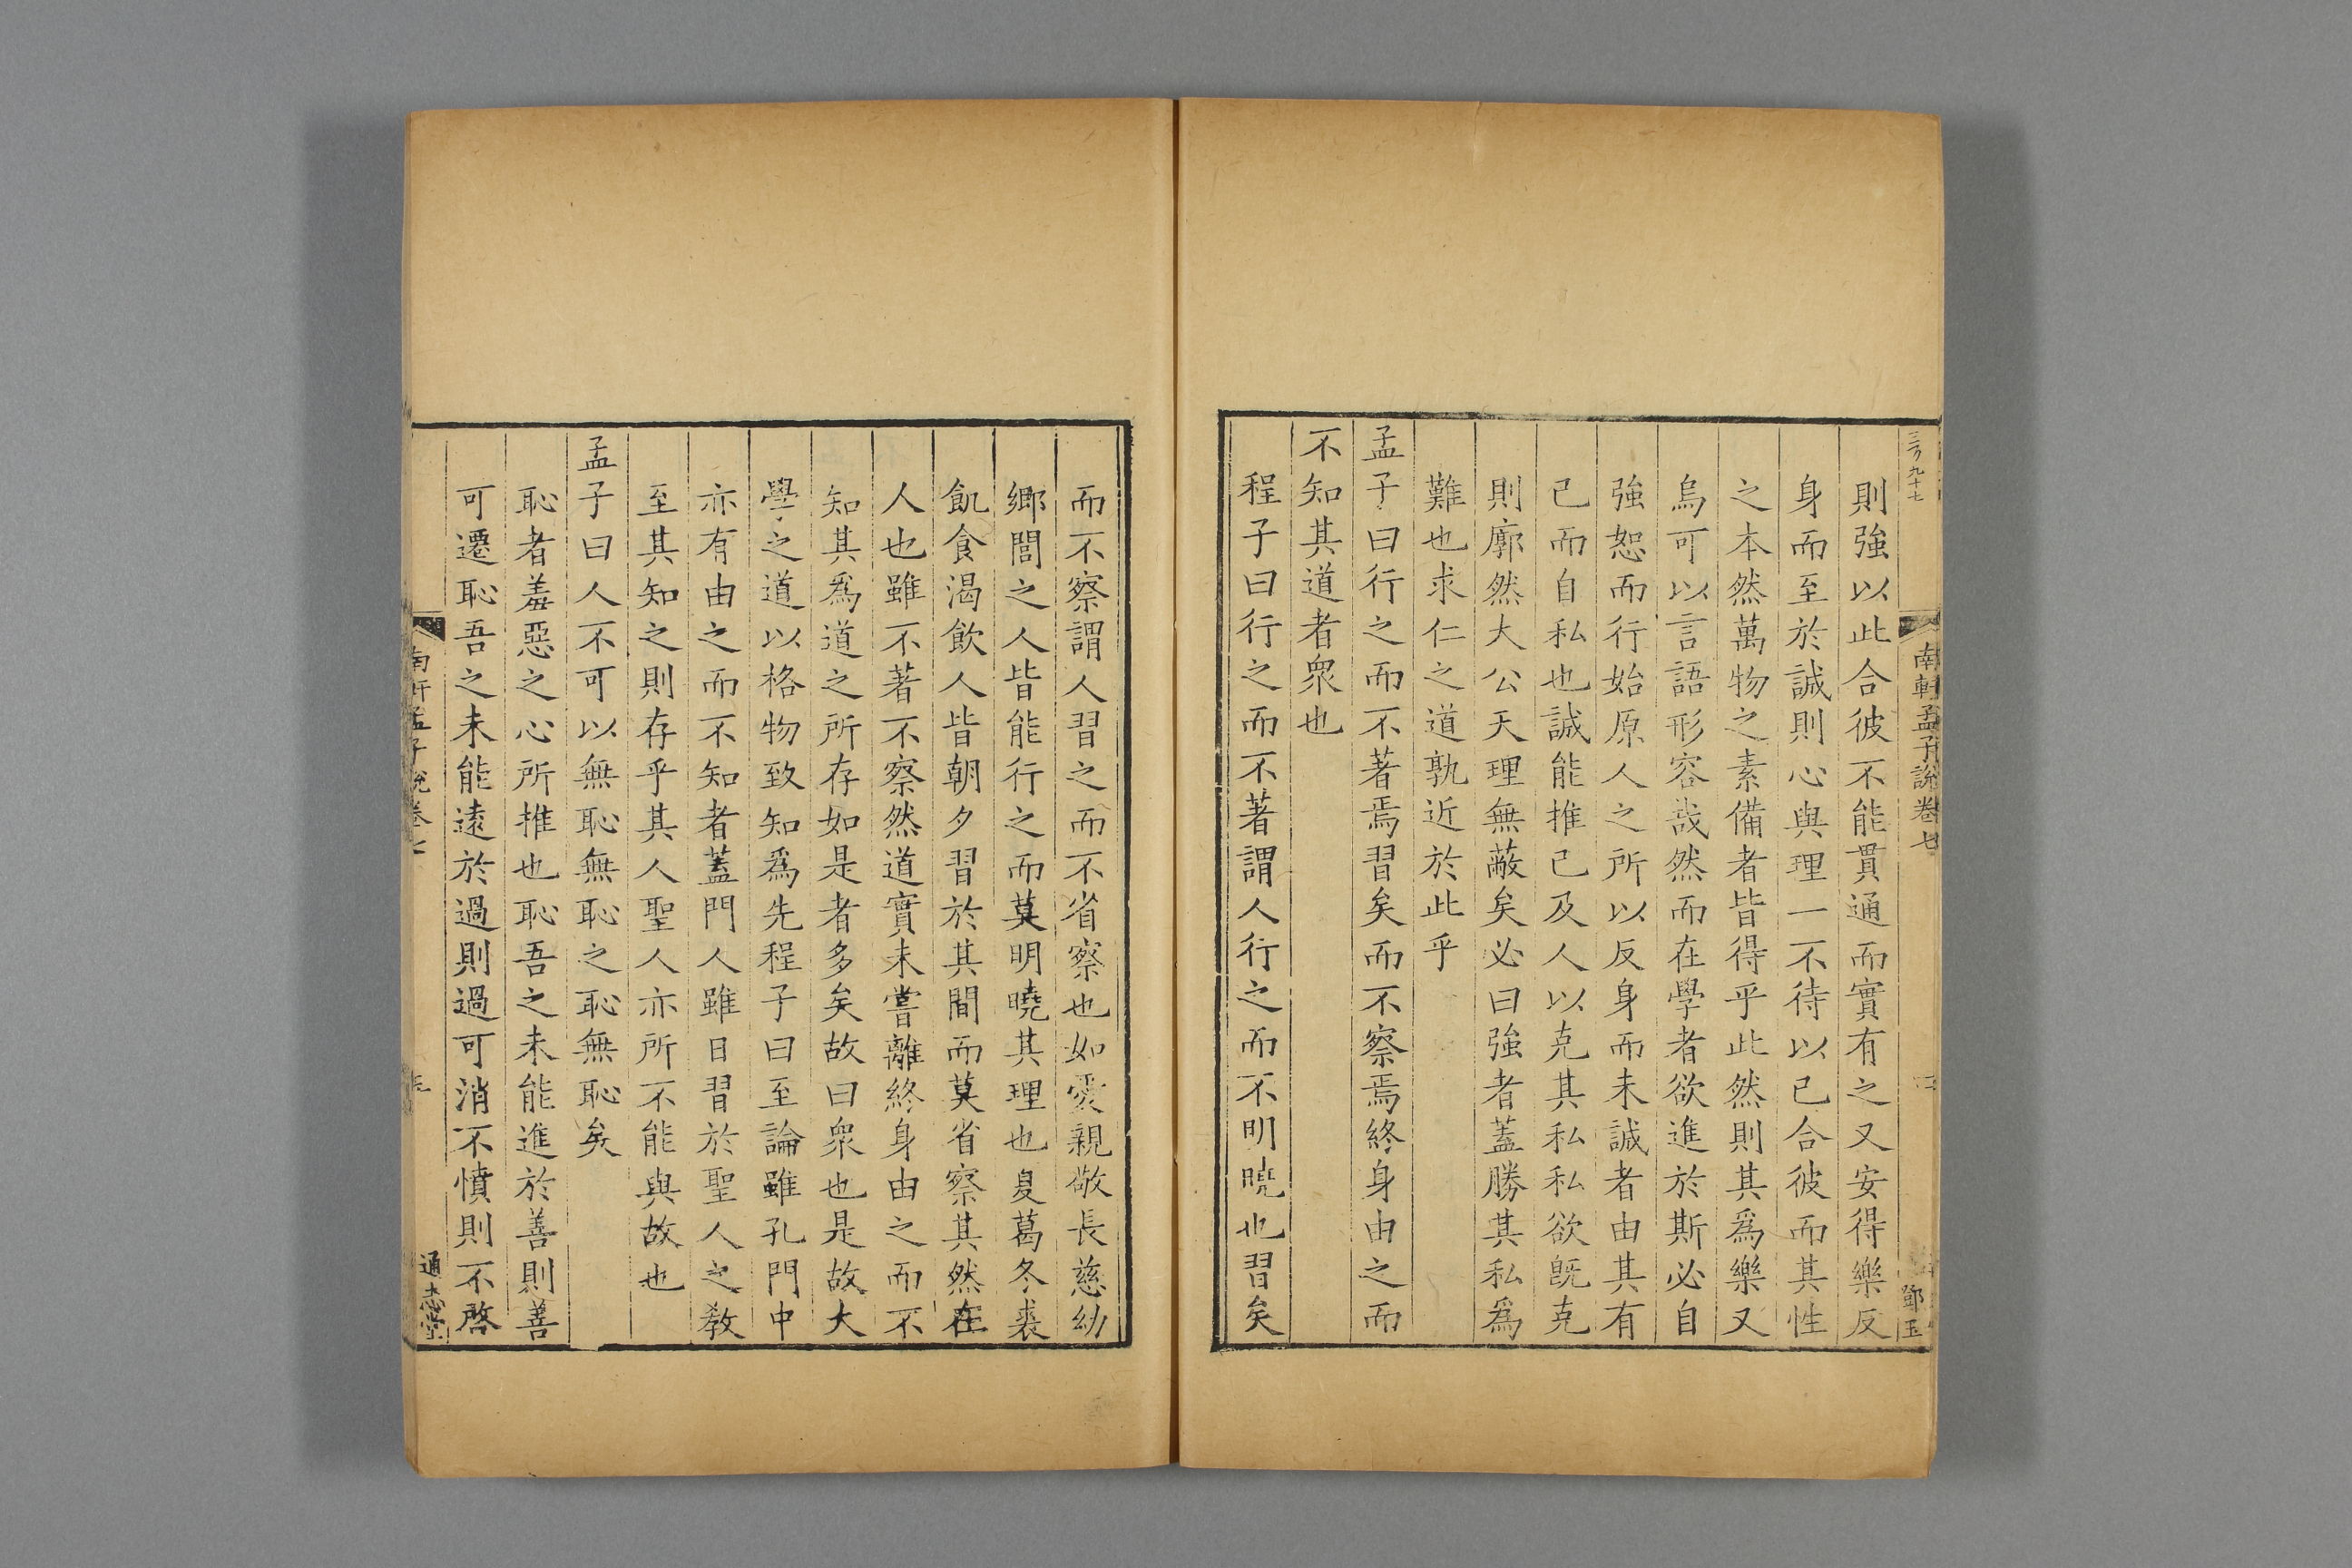 三刃九十七
南軒孟子說卷七
二
鄧玉
則強以此合彼不能貫通而實有之又安得樂反
身而至於誠則心與理一不待以己合彼而其性
之本然萬物之素備者皆得乎此然則其爲樂又
烏可以言語形容哉然而在學者欲進於斯必自
強恕而行始原人之所以反身而未誠者由其有
己而自私也誠能推己及人以克其私私欲旣克
則廓然大公天理無蔽矣必曰強者蓋勝其私爲
難也求仁之道孰近於此乎
孟子曰行之而不著焉習矣而不察焉終身由之而
不知其道者衆也
程子曰行之而不著謂人行之而不明曉也習矣
而不察謂人習之而不省察也如愛親敬長慈幼
鄉閭之人皆能行之而莫明曉其理也夏葛冬裘
飢食渴飲人皆朝夕習於其間而莫省察其然在
人也雖不著不察然道實未嘗離終身由之而不
知其爲道之所存如是者多矣故曰衆也是故大
學之道以格物致知爲先程子曰至論雖孔門中
亦有由之而不知者蓋門人雖日習於聖人之教
至其知之則存乎其人聖人亦所不能與故也
孟子曰人不可以無恥無恥之恥無恥矣
恥者羞惡之心所推也恥吾之未能進於善則善
可遷恥吾之未能遠於過則過可消不憤則不啓
南軒孟子說卷七
三
通志堂